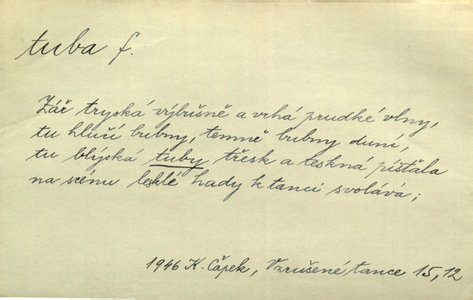 tuba f.
Zář tryská výbušně a vrhá prudké vlny,
tu hlučí bubny, temně bubny duní,
tu blýská tuby třesk a teskná píšťala
na scénu lesklé hady k tanci svolává;
1946 K. Čapek, Vzrušené tance 15,12